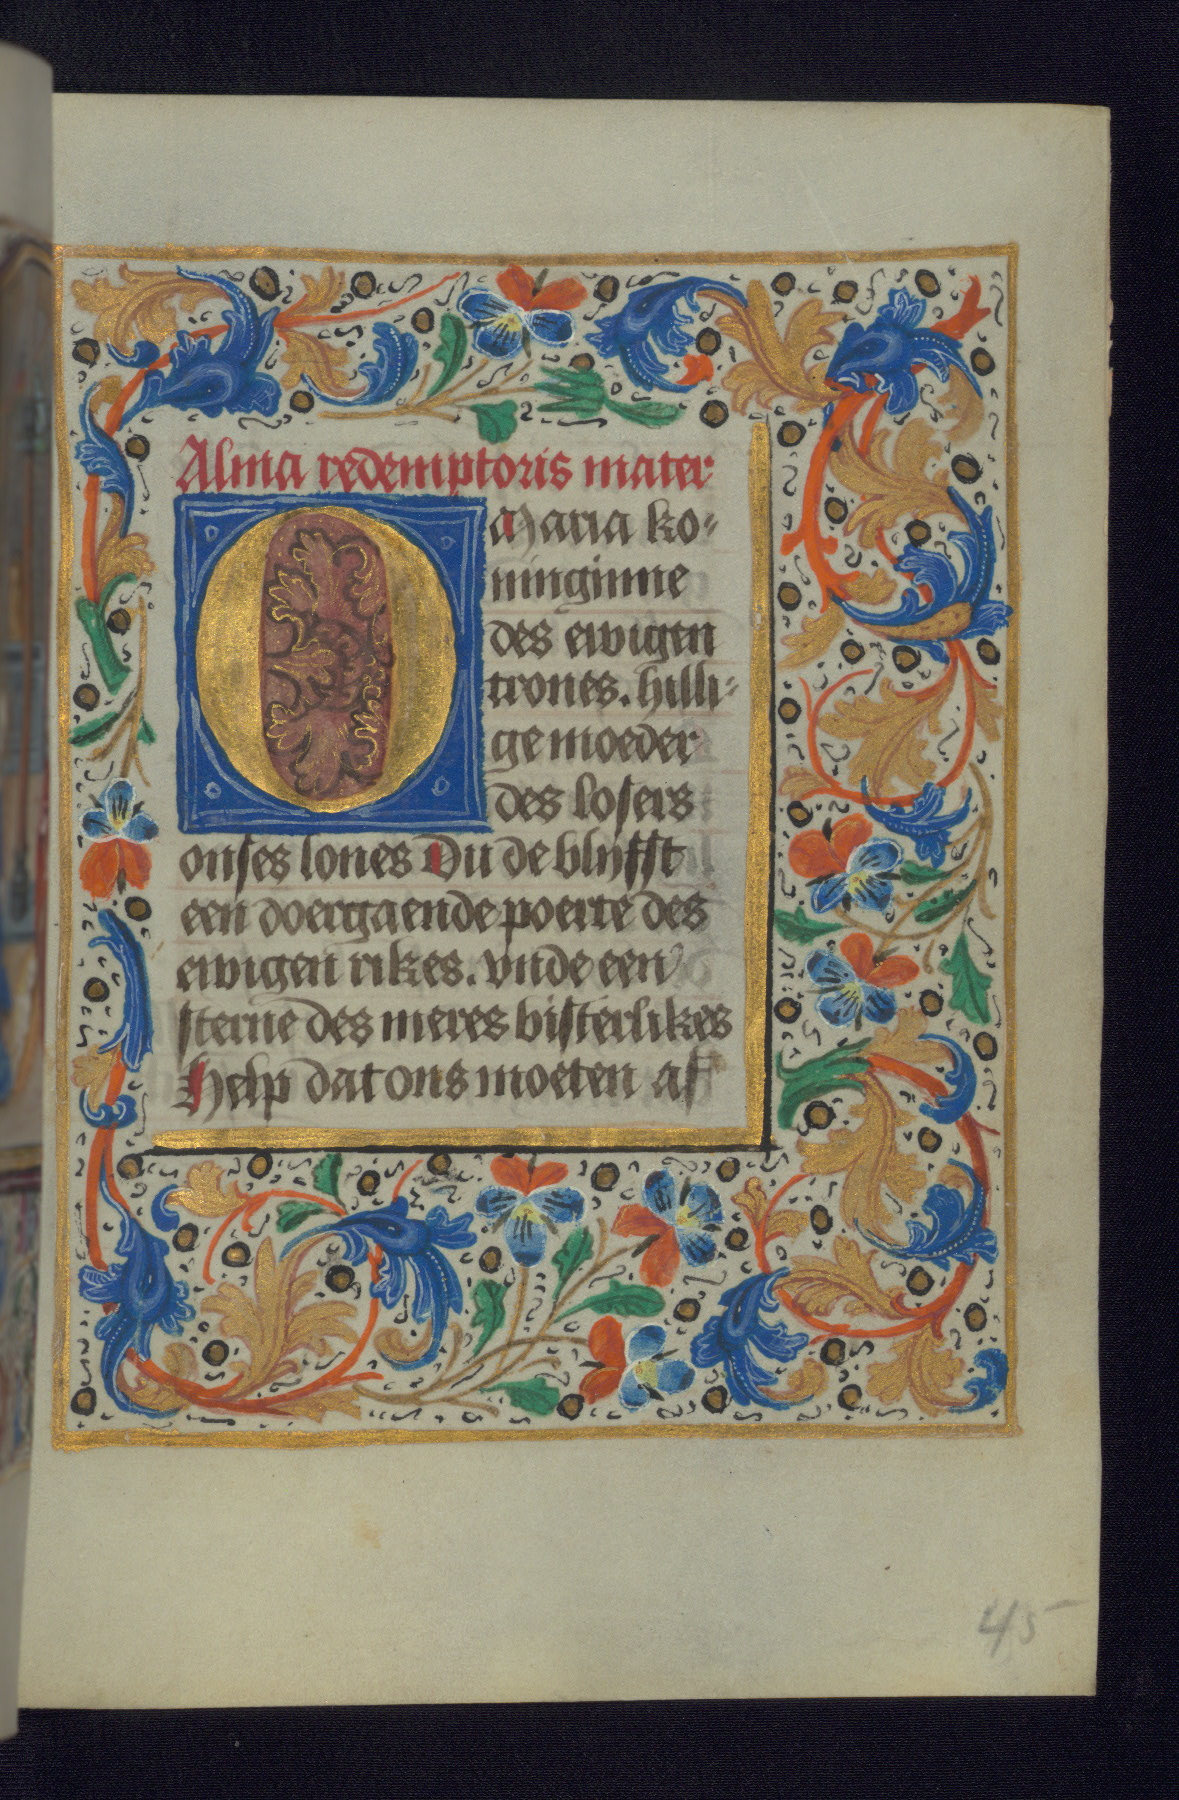 Alma redemptoris mater
O Maria ko-
ninginne
des ewigen
trones. hilli-
ge moeder
des losers
onses lones Du de blijffst
een doergaende poerte des
ewigen rikes. vnde een
sterne des meres bisterlikes
Help dat ons moeten af
45